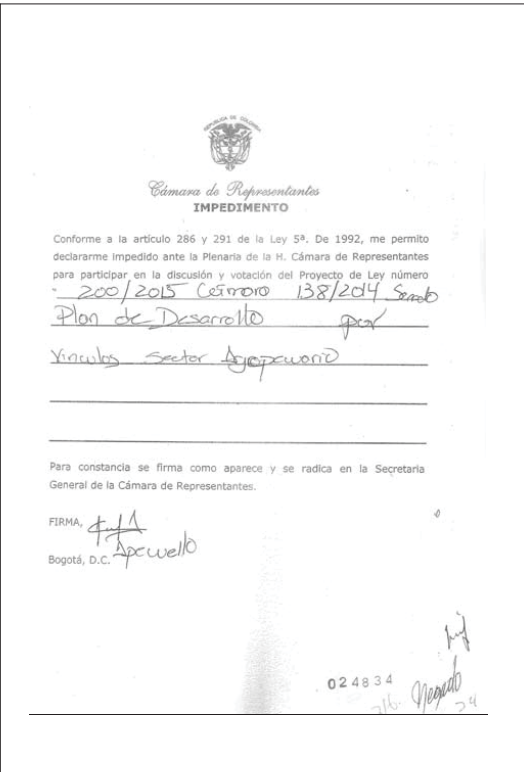 REPUBLICA DE COLOMBIA
Cámara de Representantes
IMPEDIMENTO
Conforme a la artículo 286 y 291 de la Ley 5ª. De 1992, me permito
declararme impedido ante la Plenaria de la H. Cámara de Representantes
para participar en la discusión y votación del Proyecto de Ley número
200/2015 Camara 138/2014 Senado
Plan de Desarrollo por
Vinculos Sector Agropecuario
Para constancia se firma como aparece y se radica en la Secretaria
General de la Cámara de Representantes.
FIRMA,
Bogotá, D.C.
024834
Negado